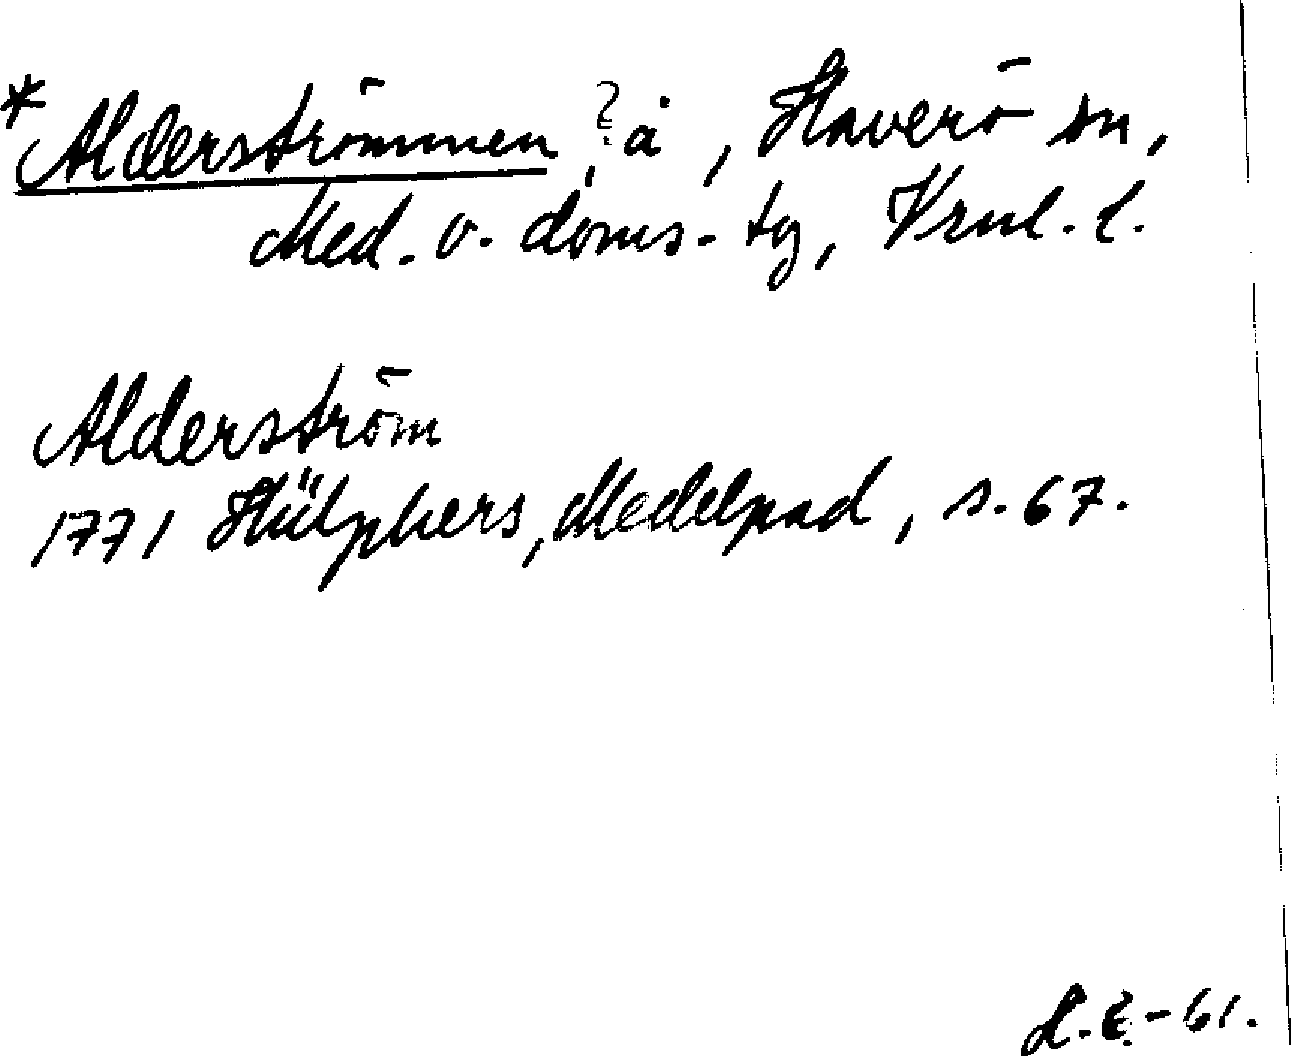 *Alderströmmen,? å, Haverö sn,
Med. v. doms. tg, Vrnl. l.
Alderström
1771 Hülphers, Medelpad, s. 67.
L.E-61.